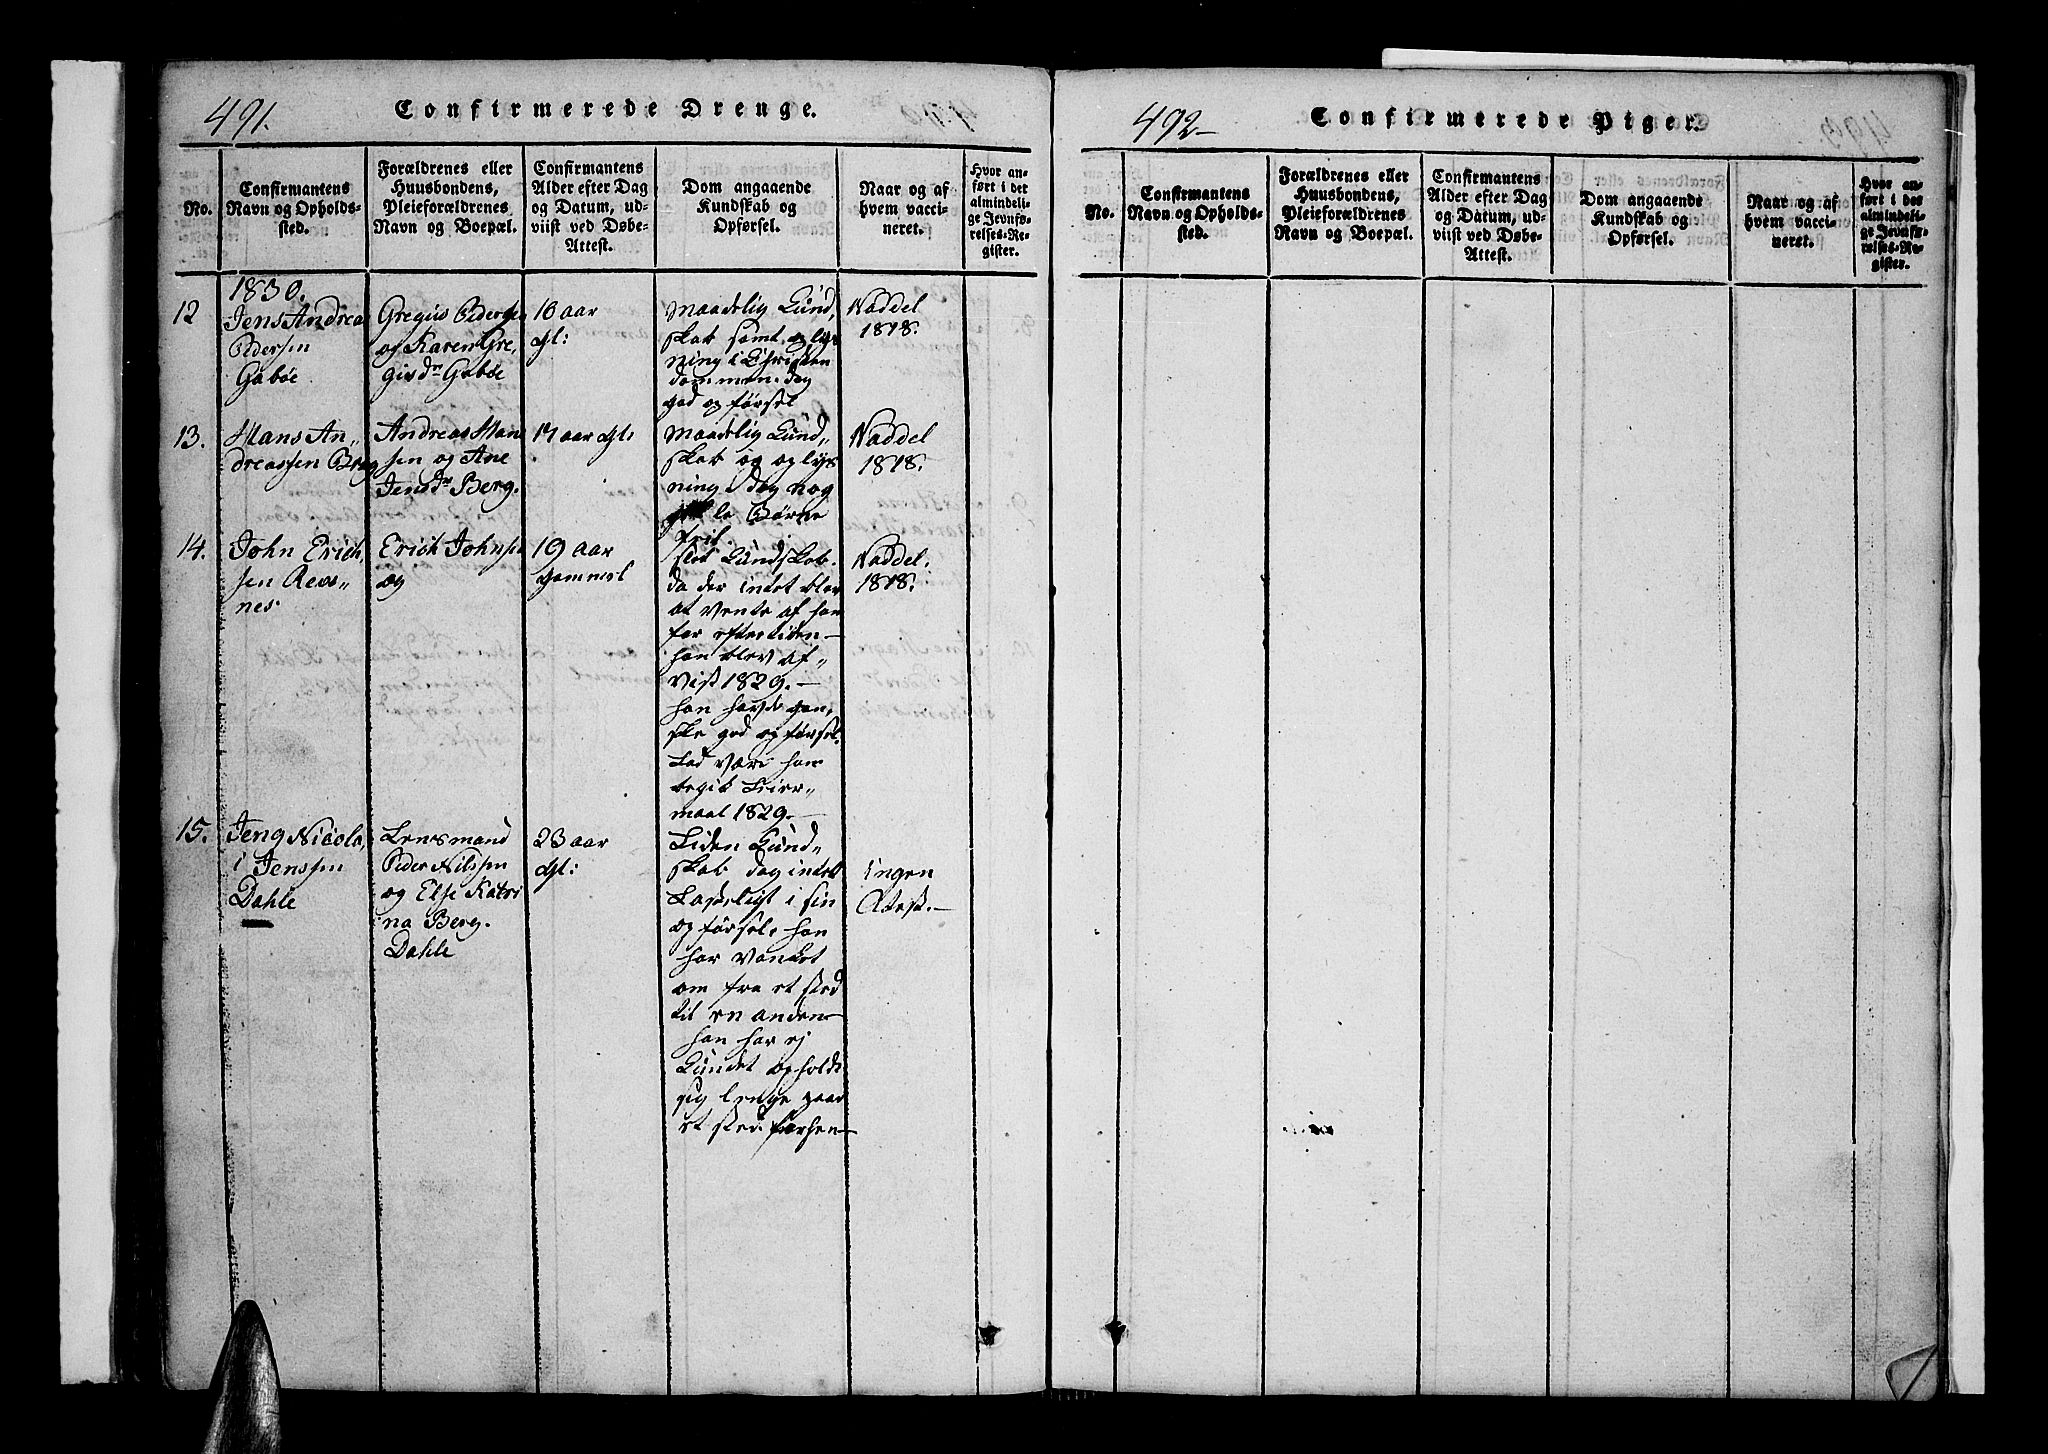 491.
Confirmerede Drenge.
No.
Confirmantens
Navn og Opholds-
sted.
Forældrenes eller
Huusbondens,
Pleieforældrenes
Navn og Boepæl.
Confirmantens
Alder efter Dag
og Datum, ud-
viist ved Døbe-
Attest.
Dom angaaende
Kundskab og
Opførsel.
Naar og af
hvem vacci-
neret.
Hvor an-
ført i det
almindeli-
ge Jevnfø-
relses-Re-
gister.
1830.
12
Jens Andrea
Pedersen
Gabøe
Gregius Pedersen
og Karen Gre,
gisdr Gabøe
16 aar
gl:
Maadelig Kund,
skab samt oplys
ning i Christen
dommen. dog
god opførsel
Naddel
1818.
13.
Hans An,,
dreassen Berg
Andreas Han
sen og Ane
Jensdr Berg.
17 aar gl:
Maadelig Kund,,
skab og oplys
ning. dog nog
le Børne
Naddel
1818.
14.
John Erich,
sen Revs,,
nes
Erich Johnsen
og
19 aar
gammel
slet Kundskab.
da der intet blev
at vente af ham
for eftertiden—
han blev af,,
vist 1829.—
han havde gan,
ske god opførsel.
lad være han
begik Leier,,
maal 1829.—
Naddel.
1818.
15.
Jens Nicola,
i Jenssen
Dahle
Lensmand
Peder Nilssen
og Else Katri
na Berg.
Dahle
23 aar
gl:
Liden Kund,,
skab dog intet
Lasteligt i sin
opførsel. han
har vanket
om fra et sted
til en anden—
han har ej
Kundet opholdt
sig lenge paa
et sted forhen—
ingen
Atest.—
492—
Confirmerede Piger.
No.
Confirmantens
Navn og Opholds-
sted.
Forældrenes eller
Huusbondens,
Pleieforældrenes
Navn og Boepæl.
Confirmantens
Alder efter Dag
og Datum, ud-
viist ved Døbe-
Attest.
Dom angaaende
Kundskab og
Opførsel.
Naar og af
hvem vacci-
neret.
Hvor an-
ført i det
almindeli-
ge Jevnfø-
relses-Re-
gister.